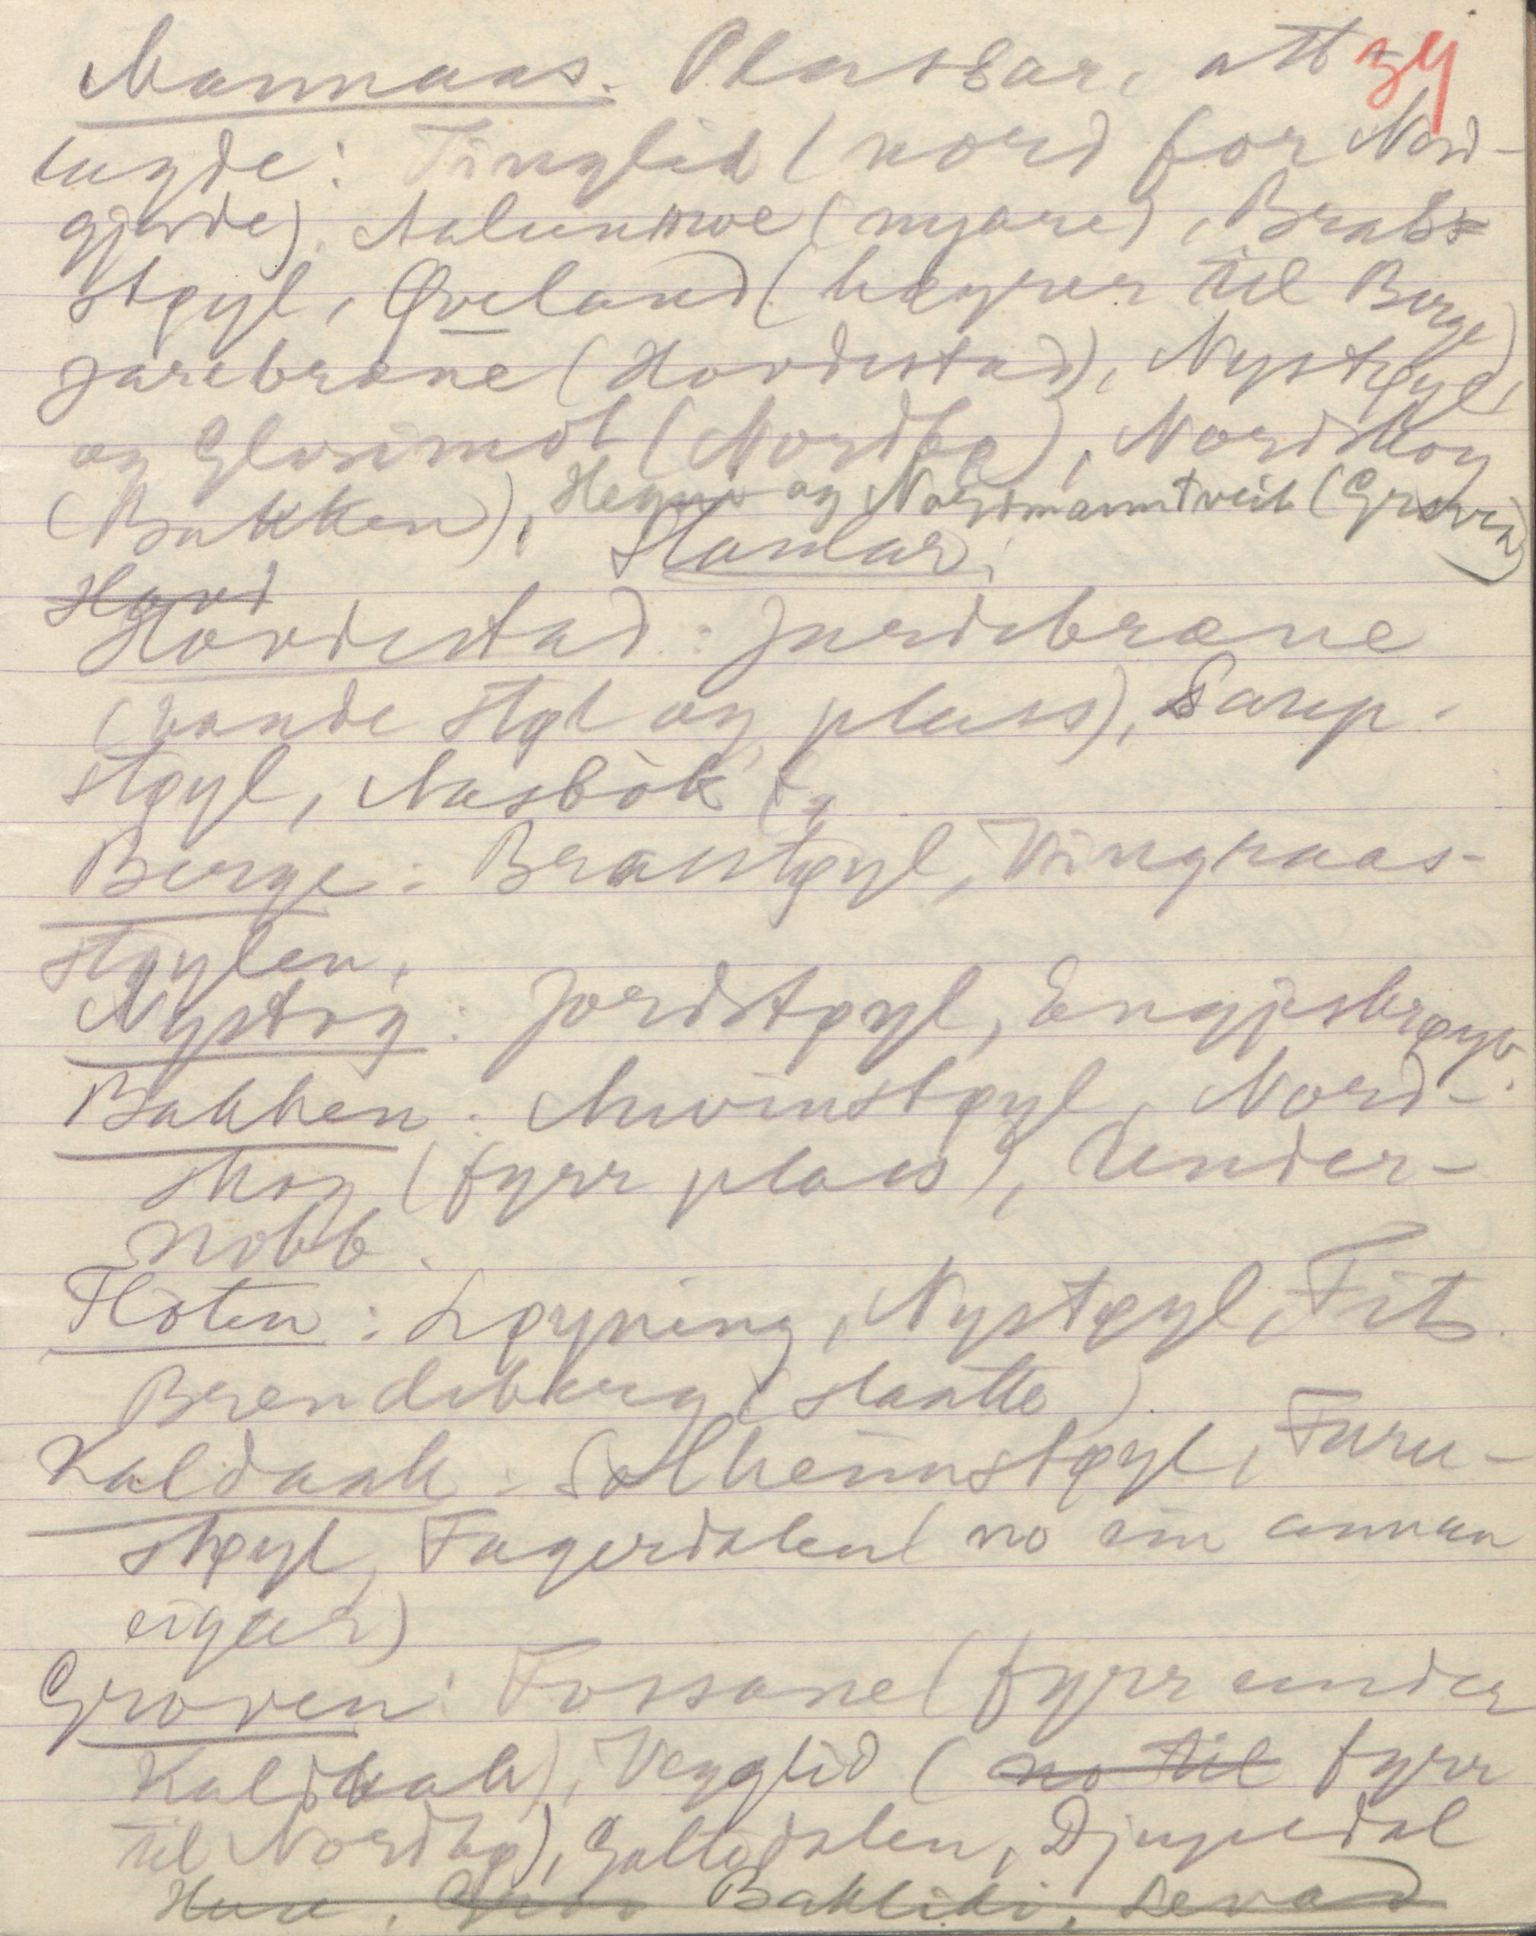 Mannaas. Plassar, att 34
lagde: Tinglid (nord for Nord-
gjerde), (nyare), Brak-
støyl, Øveland (høyrer til Berge)
Jarebræne (Hovdestad), Nystøyl,
og Glosimot (Nordbø), Nordskog
(Bakken), og Nordmanntveit (Groven)
Stønlar.
Hovd
Hovdestad: Jardebræne
(baade støl og plass), Sarep-
støyl, Nasbök
Berge: Brakstøyl, Vingraas-
støylen.
Nystog: Jordstøyl, Engjesbrøyt.
Bakken: Mivinstøyl, Nord-
skog (fyrr plass), Under-
nobb.
Floten: Løyning, Nystøyl, Fit
Brendeberg (slaatte).
Kaldaak: Solheimstøyl, Furu-
støyl, Fagerdalen (no ein annan
eigar)
Groven: Fossane (fyrr under
Kaldaak), Vegglid (no til fyrr
til Nordbø), Galtedalen, Djupedal
Bakliði, Levad